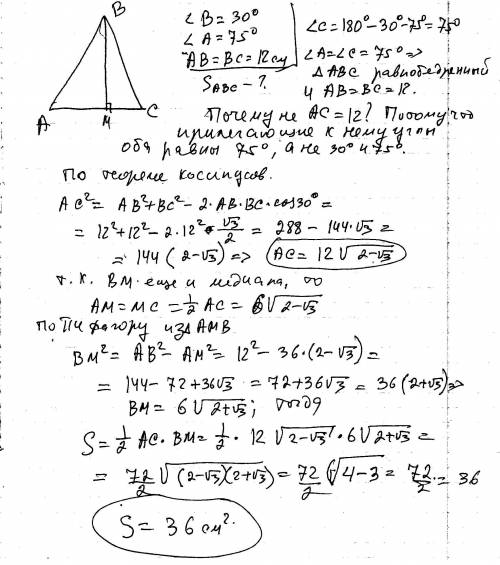 B
∠B = 30°
∠A = 75°
AB = BC = 12 см
S_ABC - ?
∠C = 180° - 30° - 75° = 75°
∠A = ∠C = 75° =>
△ ABC равнобедренный
и AB = BC = 12.
A M C
Почему не AC = 12? Потому что
прилегающие к нему углы
оба равны 75°, а не 30° и 75°.
По теореме косинусов.
AC² = AB² + BC² - 2·AB·BC·cos30° =
= 12² + 12² - 2·12²·√3/2 = 288 - 144·√3 =
= 144(2-√3) => AC = 12√(2-√3)
т.к. BM еще и медиана, то
AM = MC = 1/2 AC = 6√(2-√3)
По Пифагору из AMB
BM² = AB² - AM² = 12² - 36·(2-√3) =
= 144 - 72 + 36√3 = 72 + 36√3 = 36(2+√3) =>
BM = 6√(2+√3); тогда
S = 1/2 AC·BM = 1/2·12√(2-√3)·6√(2+√3) =
= 72/2 √((2-√3)(2+√3)) = 72/2 √(4-3) = 72/2 = 36
S = 36 см².